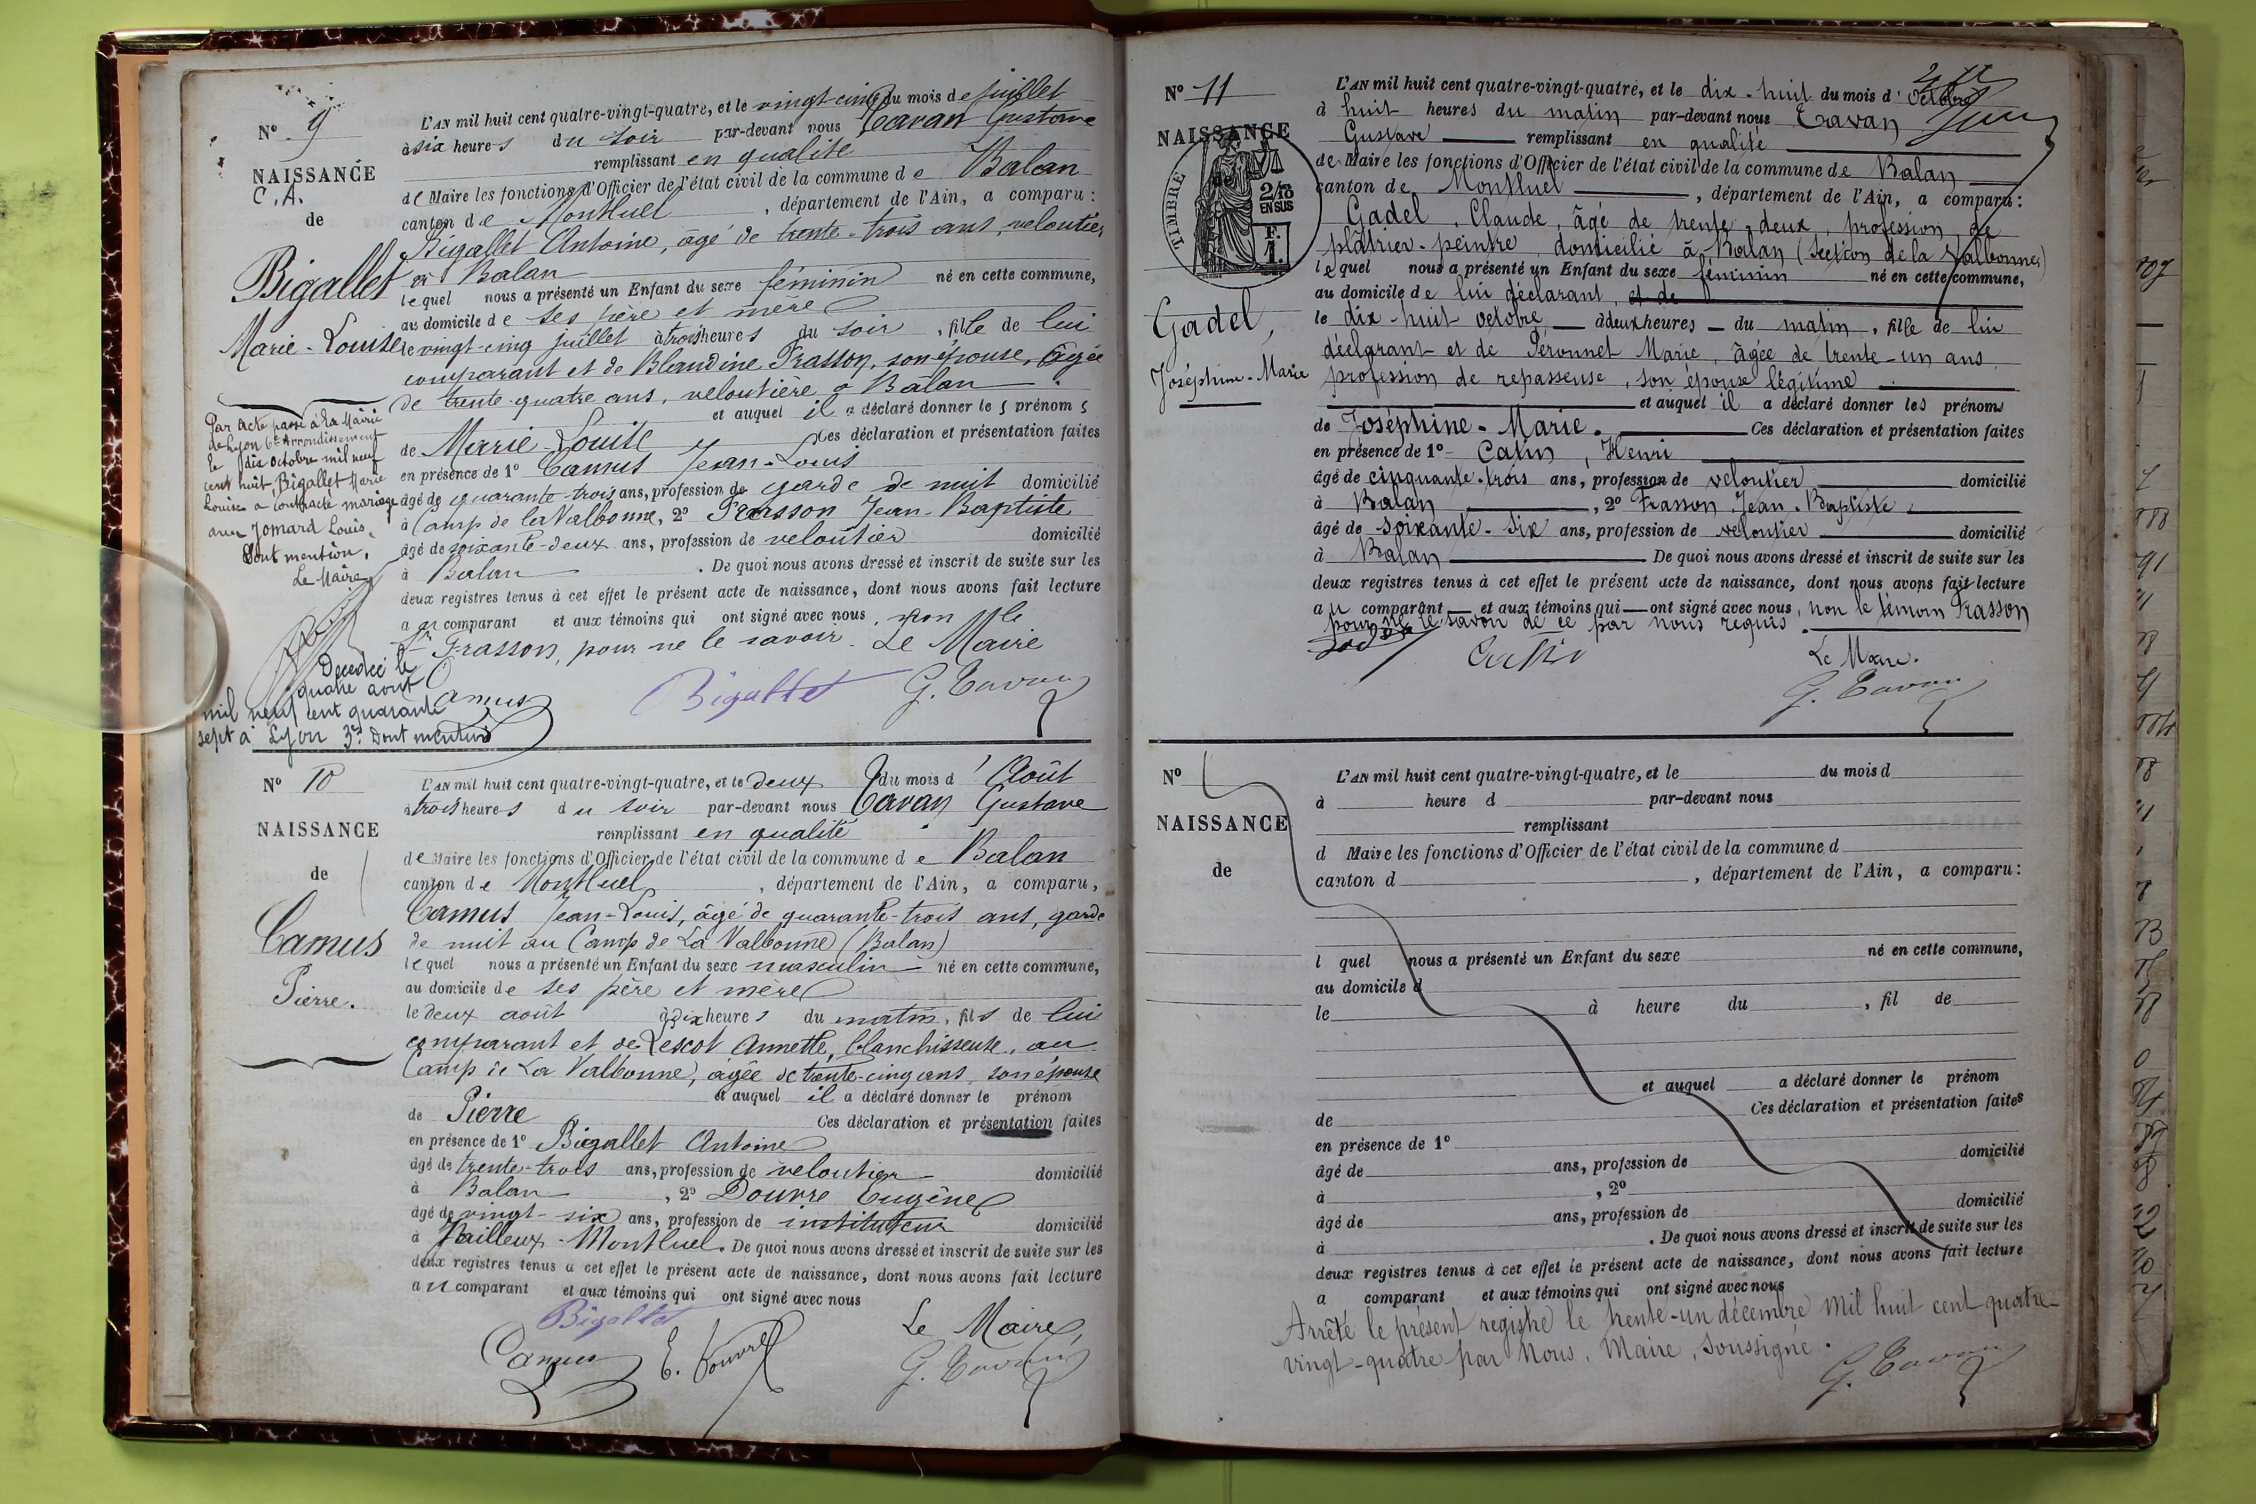 N° 9
NAISSANCE
C.A.
de
Bigallet
Marie-Louise
Par acte passé à la Mairie
de Lyon 6e Arrondissement
le dix octobre mil neuf
cent huit, Bigallet Marie
Louise a contracté mariage
avec Jomard Louis.
Dont mention.
Le Maire
Décédée le
quatre août
mil neuf cent quarante
sept à Lyon 3e. Dont mention
L'AN mil huit cent quatre-vingt-quatre, et le vingt-cinq du mois de juillet
à six heures du soir par-devant nous Tavan Gustave
remplissant en qualité
de Maire les fonctions d'Officier de l'état civil de la commune de Balan
canton de Montluel, département de l'Ain, a comparu :
Bigallet Antoine, âgé de trente-trois ans, veloutier
à Balan
lequel nous a présenté un Enfant du sexe féminin né en cette commune,
au domicile de ses père et mère
le vingt-cinq juillet à trois heures du soir, fille de lui
comparant et de Blandine Frasson, son épouse, âgée
de trente-quatre ans, veloutière à Balan.
et auquel il a déclaré donner les prénoms
de Marie-Louise Ces déclaration et présentation faites
en présence de 1° Camus Jean-Louis
âgé de quarante-trois ans, profession de garde de nuit domicilié
à Camp de la Valbonne, 2° Frasson Jean-Baptiste
âgé de soixante-deux ans, profession de veloutier domicilié
à Balan. De quoi nous avons dressé et inscrit de suite sur les
deux registres tenus à cet effet le présent acte de naissance, dont nous avons fait lecture
au comparant et aux témoins qui ont signé avec nous, non le
Frasson, pour ne le savoir. Le Maire
Camus Bigallet G. Tavan
N° 10
NAISSANCE
de
Camus
Pierre.
L'AN mil huit cent quatre-vingt-quatre, et le deux du mois d'Août
à trois heures du soir par-devant nous Tavan Gustave
remplissant en qualité
de Maire les fonctions d'Officier de l'état civil de la commune de Balan
canton de Montluel, département de l'Ain, a comparu,
Camus Jean-Louis, âgé de quarante-trois ans, garde
de nuit au Camp de La Valbonne (Balan)
lequel nous a présenté un Enfant du sexe masculin né en cette commune,
au domicile de ses père et mère
le deux août à dix heures du matin, fils de lui
comparant et de Lescot Annette, blanchisseuse, au
Camp de La Valbonne, âgée de trente-cinq ans, son épouse
et auquel il a déclaré donner le prénom
de Pierre Ces déclaration et présentation faites
en présence de 1° Bigallet Antoine
âgé de trente-trois ans, profession de veloutier domicilié
à Balan, 2° Douvre Eugène
âgé de vingt-six ans, profession de instituteur domicilié
à Jailleux-Montluel. De quoi nous avons dressé et inscrit de suite sur les
deux registres tenus à cet effet le présent acte de naissance, dont nous avons fait lecture
au comparant et aux témoins qui ont signé avec nous
Bigallet Le Maire,
Camus E. Douvre G. Tavan
N° 11
NAISSANCE
de
TIMBRE
2/10
EN SUS
F.
1.
Gadel,
Joséphine-Marie
L'AN mil huit cent quatre-vingt-quatre, et le dix-huit du mois d'Octobre
à huit heures du matin par-devant nous Tavan
Gustave remplissant en qualité
de Maire les fonctions d'Officier de l'état civil de la commune de Balan
canton de Montluel, département de l'Ain, a comparu :
Gadel, Claude, âgé de trente-deux, profession de
plâtrier-peintre, domicilié à Balan (Section de la Valbonne)
lequel nous a présenté un Enfant du sexe féminin né en cette commune,
au domicile de lui déclarant, et de
le dix-huit octobre, à deux heures du matin, fille de lui
déclarant et de Peronnet Marie, âgée de trente-un ans
profession de repasseuse, son épouse légitime
et auquel il a déclaré donner les prénoms
de Joséphine-Marie. Ces déclaration et présentation faites
en présence de 1° Catin, Henri
âgé de cinquante-trois ans, profession de veloutier domicilié
à Balan, 2° Frasson Jean-Baptiste,
âgé de soixante-six ans, profession de veloutier domicilié
à Balan De quoi nous avons dressé et inscrit de suite sur les
deux registres tenus à cet effet le présent acte de naissance, dont nous avons fait lecture
au comparant et aux témoins qui ont signé avec nous, non le témoin Frasson
pour ne le savoir de ce par nous requis.
Le Maire.
G. Tavan
N°
NAISSANCE
de
L'AN mil huit cent quatre-vingt-quatre, et le du mois d
à heure d par-devant nous
remplissant
d Maire les fonctions d'Officier de l'état civil de la commune d
canton d , département de l'Ain, a comparu :
l quel nous a présenté un Enfant du sexe né en cette commune,
au domicile d
le à heure du , fil de
et auquel a déclaré donner le prénom
de Ces déclaration et présentation faites
en présence de 1°
âgé de ans, profession de domicilié
à , 2°
âgé de ans, profession de domicilié
à . De quoi nous avons dressé et inscrit de suite sur les
deux registres tenus à cet effet le présent acte de naissance, dont nous avons fait lecture
a comparant et aux témoins qui ont signé avec nous
Arrêté le présent registre le trente-un décembre mil huit cent quatre-
vingt-quatre par Nous, Maire, soussigné.
G. Tavan